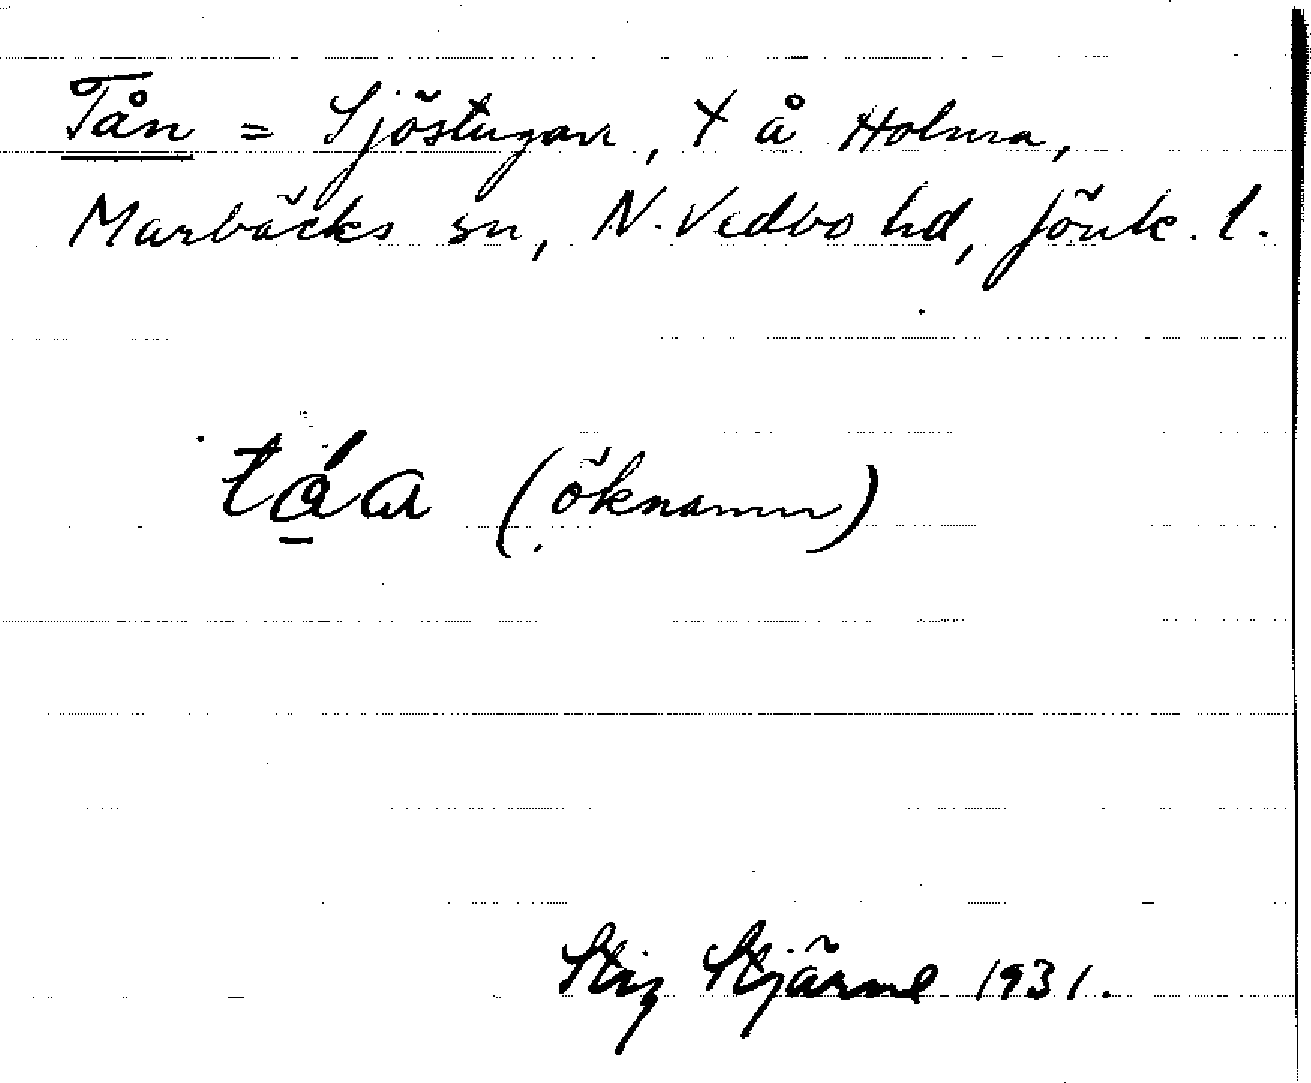 Tån = Sjöstugan, † å Holma,
Marbäcks sn, N. Vedbo hd, Jönk. l.
tá̱a (öknamn)
Stig Stjärne 1931.